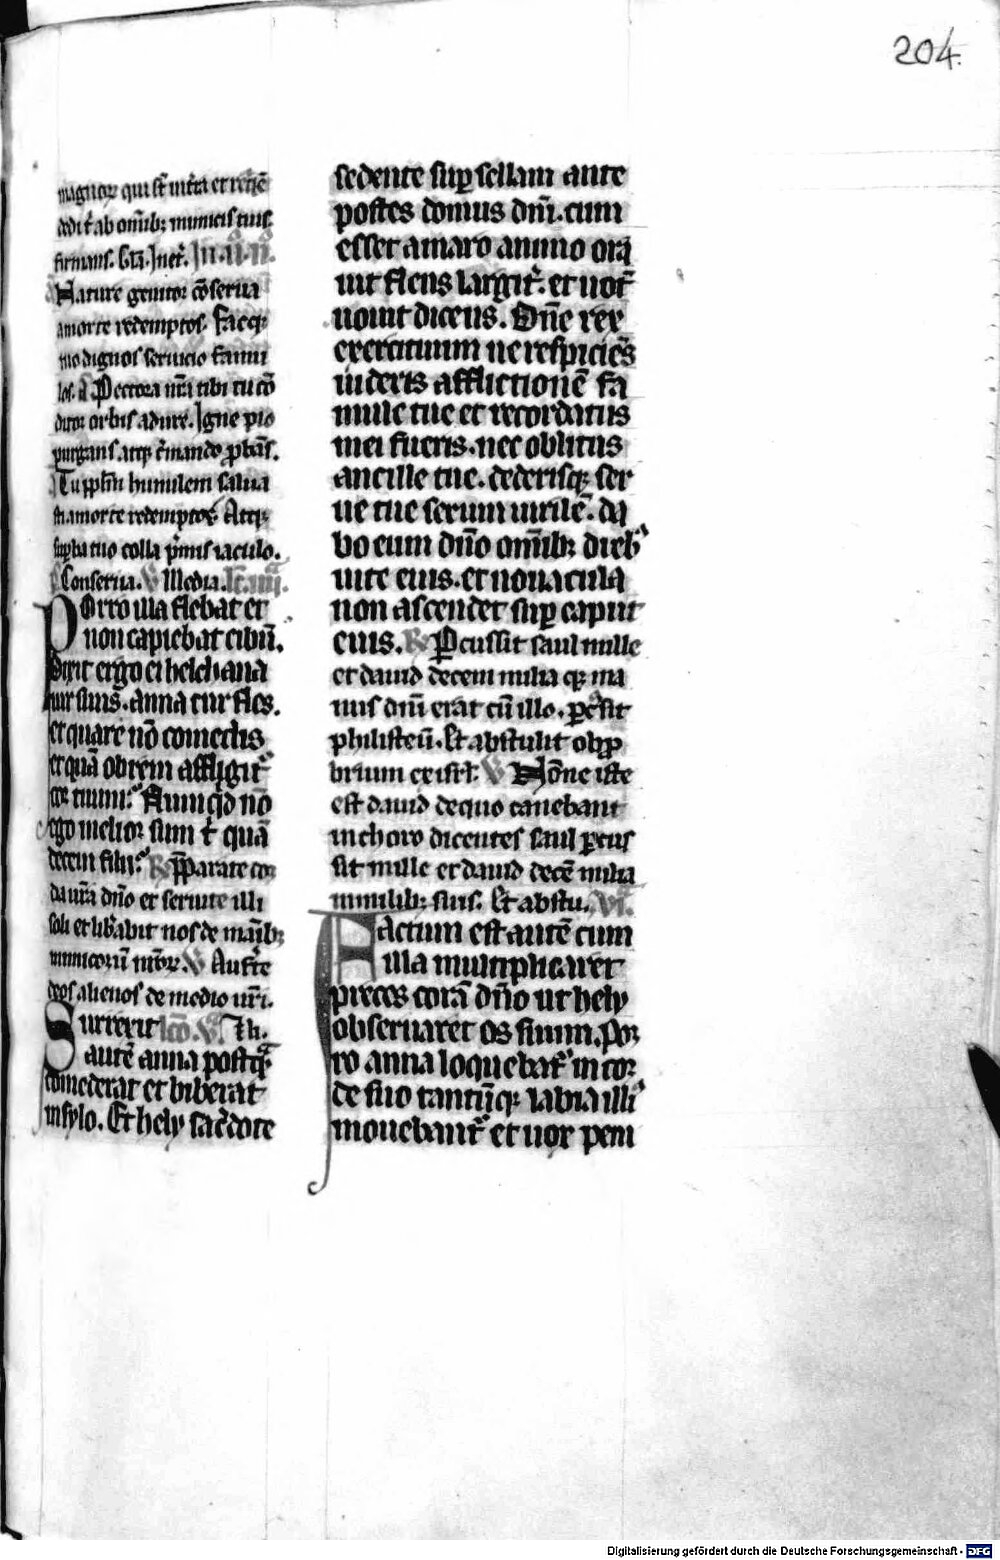 204.
magnoꝝ qui st̄ int̄ra et req̄ē
dedit ab om̄ib; inimicis tuis
firmans. In. ii. n̄.
Nature genitor cōserua
morte redemptos. Facq;
tuo dignos seruicio famu
los. Pectora nr̄a tibi tu cō
ditor orbis adure. Igne pio
purgans. atq; c̄mando ꝓbās.
Tu ꝓpl̄m humilem salua
morte redemptos. Atq;
suꝑba tuo colla p̄mis iaculo.
Conserua. V Media. lc̄. iiij.
Porro illa flebat et
non capiebat cibū.
Dixit ergo ei helchana
uir suus. anna cur fles.
et quare nō comedis
et quā obrem affligit̄
cor tuum. Numq̇d nō
ego melior sum t̄ quā
decem filij. R̷ P̄parate cor
da uestra dn̄o et seruite illi
soli et lib̄abit uos de manib;
inimicoꝝ uroꝝ. V Auferte
deos alienos de medio ur̄i.
Surrexit lc̄o. V.
autē anna postq̄
comederat et biberat
in sylo. Et hely sac̄dote
sedente suꝑ sellam ante
postes domus dn̄i. cum
esset amaro animo ora
uit flens largit̄. et uot̄
uouit dicens. Dn̄e rex
exercituum ne respiciēs
uideris afflictionē fa
mule tue et recordatus
mei fueris. nec oblitus
ancille tue. dederisq; ser
ue tue sexum uirilē. da
bo eum dn̄o om̄ib; dieb;
uite eius. et nouacula
non ascendet suꝑ caput
eius. R̷ Ꝑcussit saul mille
et dauid decem milia q; ma
nus dn̄i erat cū illo. ꝑc̄ssit
philisteū. Et abstulit obꝓ
brium ex isrl̄. V Nōne iste
est dauid de quo canebant
in choro dicentes saul ꝑcus
sit mille et dauid decē milia
in milib; suis. Et abstu. vi.
Factum est autē cum
illa multiplicaret
preces corā dn̄o ut hely
obseruaret os suum. Por
ro anna loquebat̄ in cor
de suo tantūq; labia illi;
mouebant̄ et uox peni
Digitalisierung gefördert durch die Deutsche Forschungsgemeinschaft - DFG